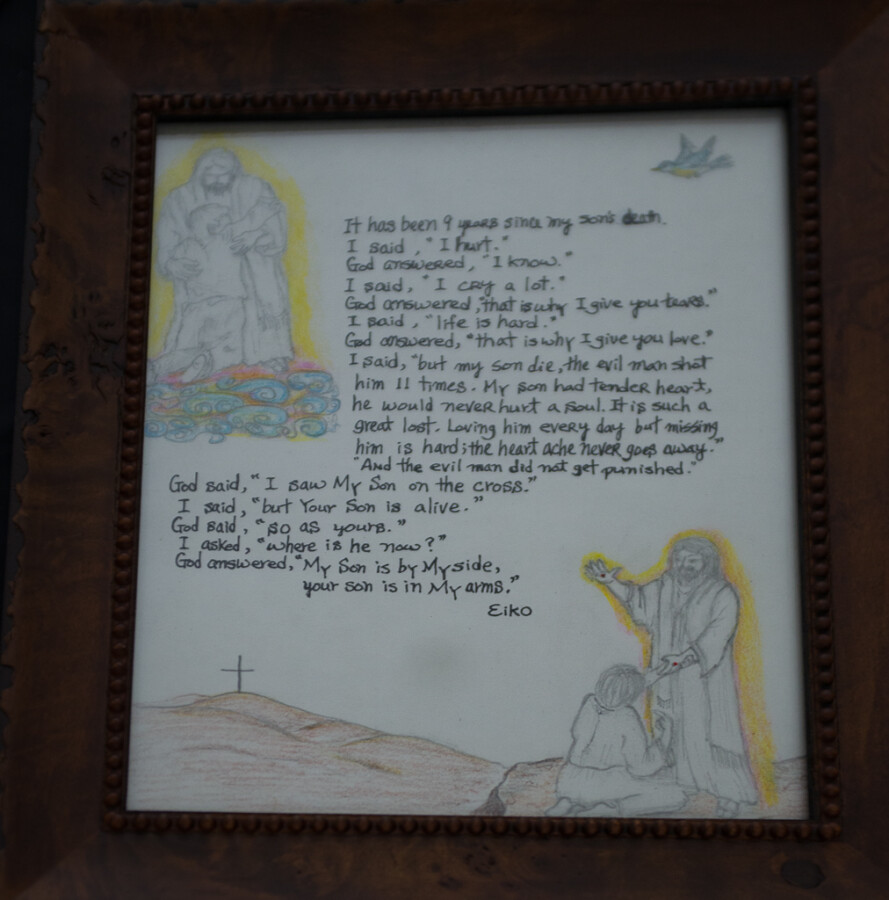 It has been 9 years since my son's death.
I said, "I hurt."
God answered, "I know."
I said, "I cry a lot."
God answered, "that is why I give you tears."
I said, "life is hard."
God answered, "that is why I give you love."
I said, "but my son die, the evil man shot
him 11 times. My son had tender heart,
he would never hurt a soul. It is such a
great lost. Loving him every day but missing
him is hard; the heart ache never goes away."
"And the evil man did not get punished."
God said, "I saw My Son on the cross."
I said, "but Your Son is alive."
God said, "so as yours."
I asked, "where is he now?"
God answered, "My Son is by My side,
your son is in My arms."
Eiko